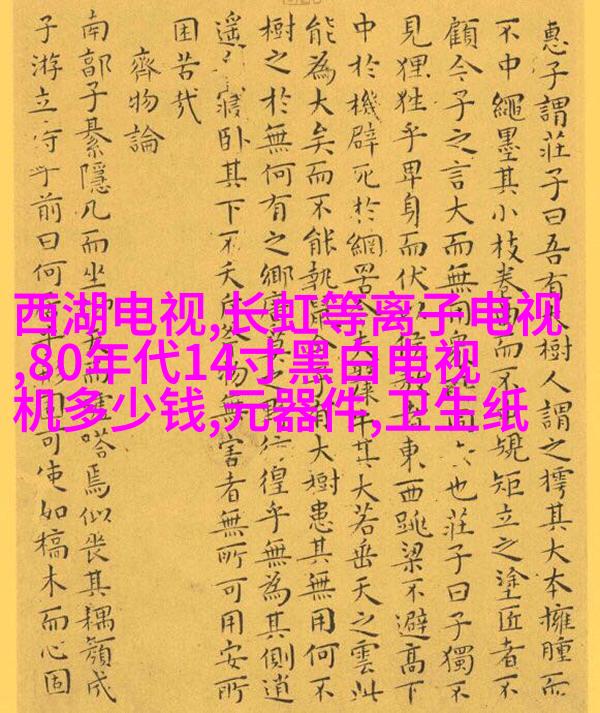 西湖电视,长虹等离子电视
,80年代14寸黑白电视
机多少钱,元器件,卫生纸
惠子謂莊子曰吾有樹人謂之樗其大本擁腫而
不中繩墨其小枝卷而不規矩立之塗匠者不
顧今子之言大而無用也莊子曰子獨不
見狸狌乎卑身而伏候東西跳梁不避高下
中於機辟死於網罟今牛其大若垂天之雲此
能為大矣而不能執今有大樹患其無用何不
樹之於無何有之鄉莫之徨乎無為其側逍
遥寢卧其下不夭物無害者無所可用安所
困苦哉
齊物論
南郭子綦隱几而坐而嗒焉似喪其耦顏成
子游立侍乎前曰何可使如槁木而心固